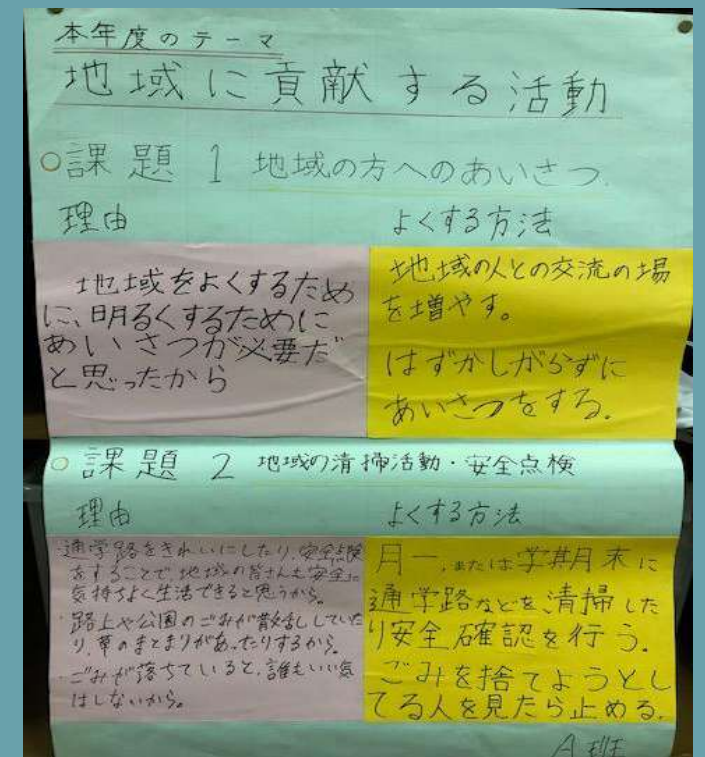 本年度のテーマ
地域に貢献する活動
○課題 1 地域の方へのあいさつ.
理由
よくする方法
地域をよくするため
に、明るくするために
あいさつが必要だ
と思ったから
地域の人との交流の場
を増やす。
はずかしがらずに
あいさつをする.
○課題 2 地域の清掃活動・安全点検
理由
よくする方法
・通学路をきれいにしたり、安全点検
をすることで、地域の皆さんも安全に
気持ちよく生活できると思うから。
・路上や公園のごみが散乱していた
り、草のまとまりがあったりするから。
・ごみが落ちていると、誰もいい気
はしないから。
月一、または学期末に
通学路などを清掃した
り安全確認を行う.
ごみを捨てようとし
てる人を見たら止める.
A班